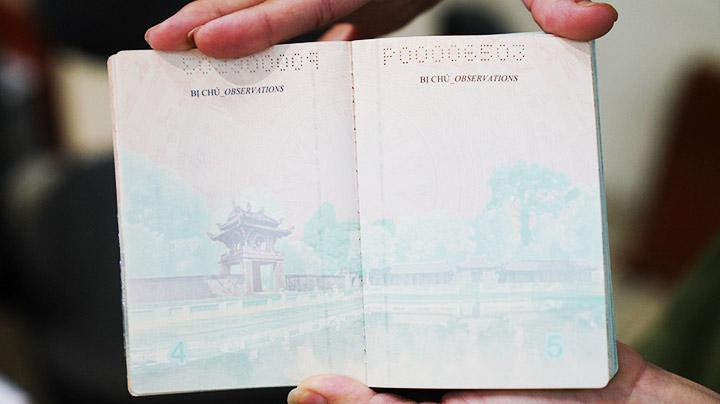 BỊ CHÚ_OBSERVATIONS
4
P00006503
BỊ CHÚ_OBSERVATIONS
5